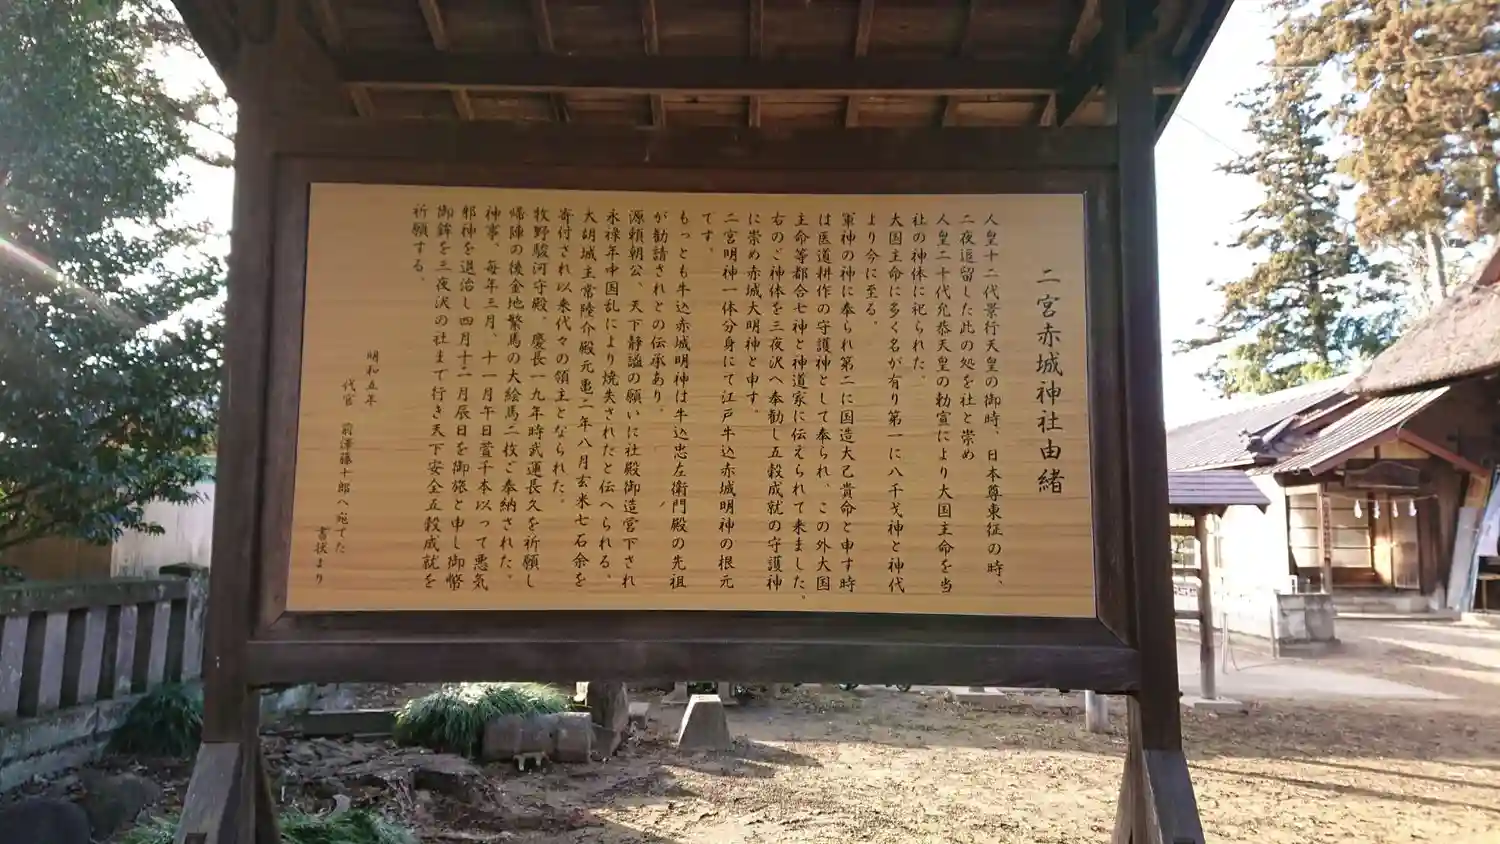 二宮赤城神社由緒
人皇十二代景行天皇の御時、日本尊東征の時、
二夜逗留した此の処を社と崇め
人皇二十代允恭天皇の勅宣により大国主命を当
社の神体に祀られた。
大国主命に多く名が有り第一に八千戈神と神代
より今に至る。
軍神の神に奉られ第二に国造大己貴命と申す時
は医道耕作の守護神として奉られ、この外大国
主命等都合七神と神道家に伝えられて来ました。
右のご神体を三夜沢へ奉勧し五穀成就の守護神
に崇め赤城大明神と申す。
二宮明神一体分身にて江戸牛込赤城明神の根元
です。
もっとも牛込赤城明神は牛込忠左衛門殿の先祖
が勧請されとの伝承あり。
源頼朝公、天下静謐の願いに社殿御造営下され
永禄年中国乱により焼失されたと伝へられる。
大胡城主常陸介殿元亀二年八月玄米七石余を
寄付され以来代々の領主となられた。
牧野駿河守殿、慶長一九年時武運長久を祈願し
帰陣の後金地繋馬の大絵馬二枚ご奉納された。
神事、毎年三月、十一月午日萱千本以って悪気
邪神を退治し四月十二月辰日を御旅と申し御幣
御鉾を三夜沢の社まで行き天下安全五穀成就を
祈願する。
明和五年
代官 前澤藤十郎へ宛てた
書状より